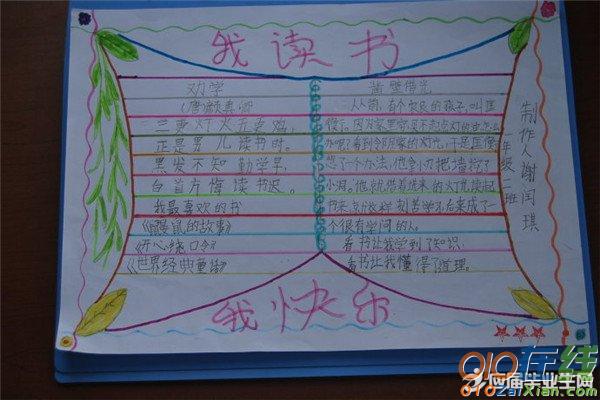 我读书
劝学
(唐颜真卿
三更灯火五更鸡,
正是男儿读书时。
黑发不知勤学早,
白首方悔读书迟。
我最喜欢的书
《鼹鼠的故事》
《开心绕口令》
《世界经典童话》
凿壁借光
人人简,有个农民的孩子,叫匡
衡了。因为家里穷买不起点灯的油怎么
办呢?看到邻居家的灯光,于是匡衡
想了个办法,他拿小刀把墙凿了
小洞。他就借着进来的灯光读起
书来,就这样刻苦学习后来成了一
个很有学问的人。
看书让我学到了知识
看书让我懂得了道理。
制作人谢闰琪
一年级二班
我快乐
010在线
010zaixian.com
应届毕业生网